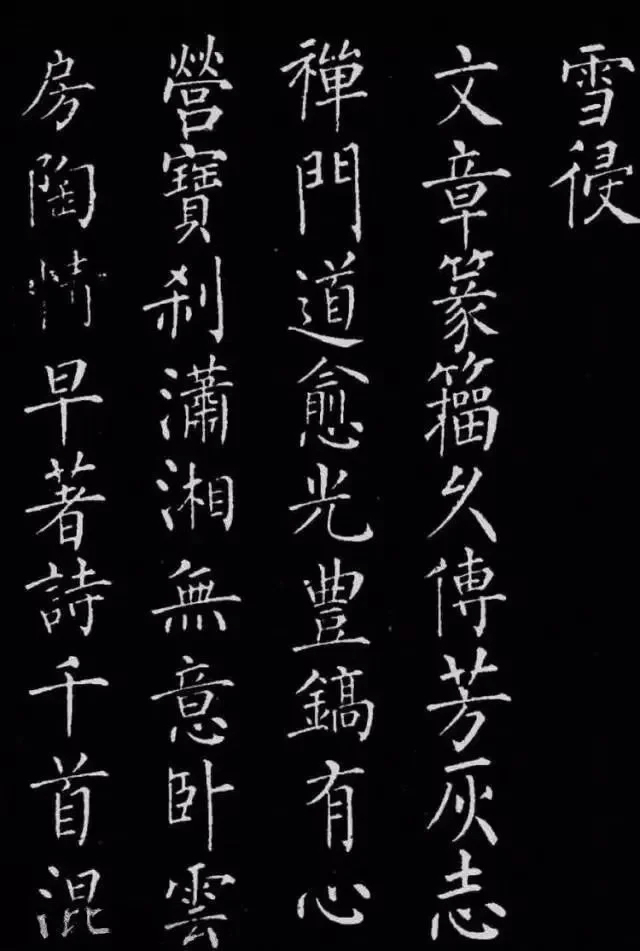 雪侵
文章篆籀久傳芳灰志
禪門道愈光豐鎬有心
營寶刹瀟湘無意臥雲
房陶情早著詩千首混